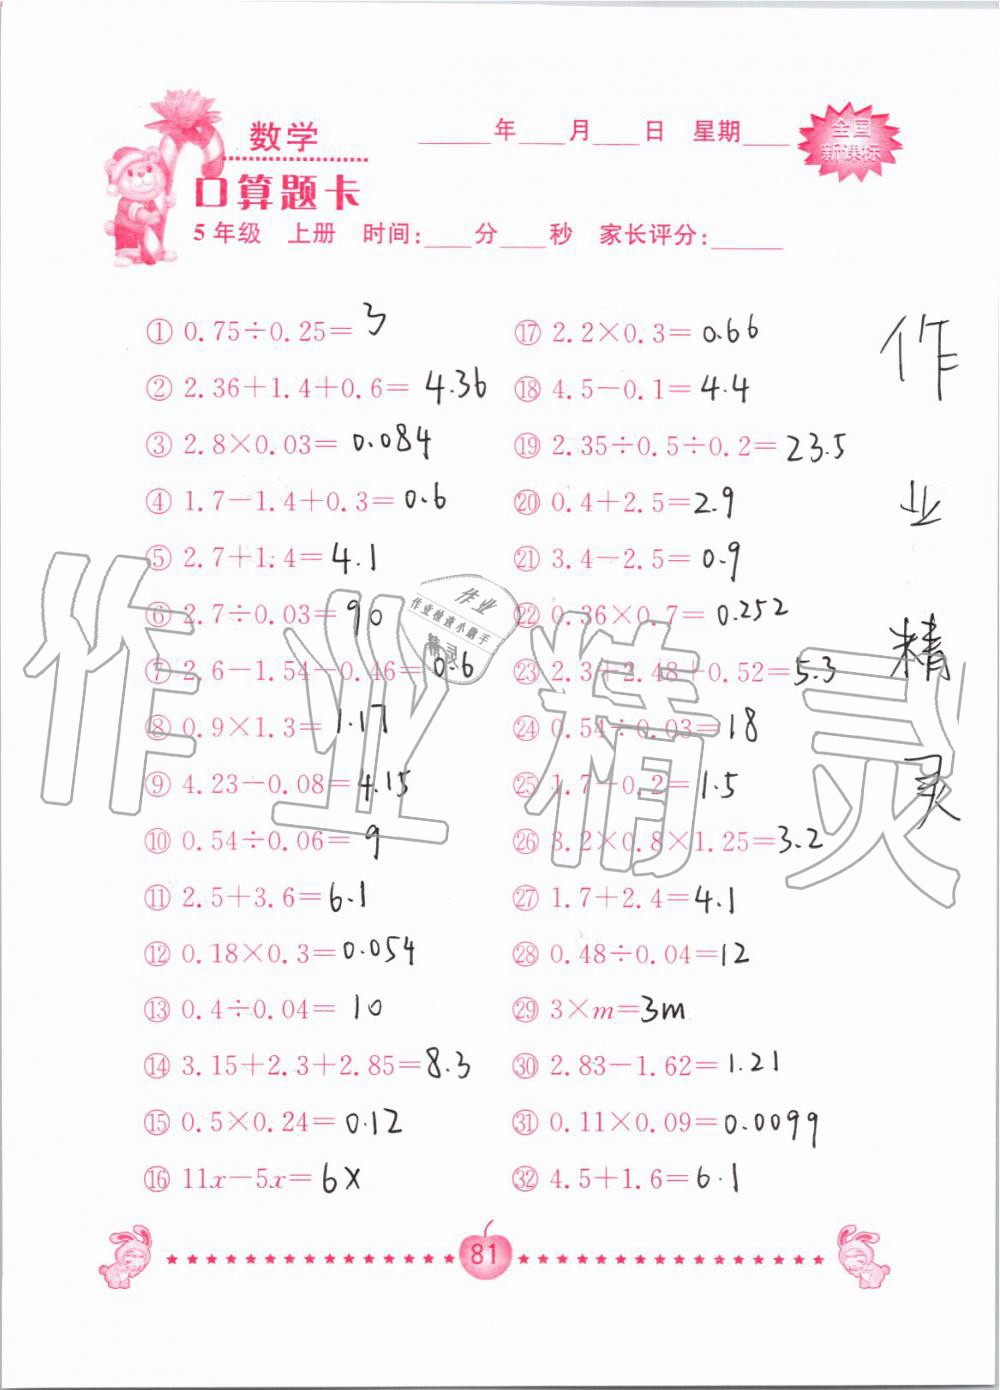 数学
口算题卡
____年____月____日 星期____
全国
新课标
5年级 上册 时间:____分____秒 家长评分:____
① 0.75÷0.25=3
② 2.36+1.4+0.6=4.36
③ 2.8×0.03=0.084
④ 1.7-1.4+0.3=0.6
⑤ 2.7+1.4=4.1
⑥ 2.7÷0.03=90
⑦ 2.6-1.54-0.46=0.6
⑧ 0.9×1.3=1.17
⑨ 4.23-0.08=4.15
⑩ 0.54÷0.06=9
⑪ 2.5+3.6=6.1
⑫ 0.18×0.3=0.054
⑬ 0.4÷0.04=10
⑭ 3.15+2.3+2.85=8.3
⑮ 0.5×0.24=0.12
⑯ 11x-5x=6x
⑰ 2.2×0.3=0.66
⑱ 4.5-0.1=4.4
⑲ 2.35÷0.5÷0.2=23.5
⑳ 0.4+2.5=2.9
㉑ 3.4-2.5=0.9
㉒ 0.36×0.7=0.252
㉓ 2.3+2.48+0.52=5.3
㉔ 0.54÷0.03=18
㉕ 1.7-0.2=1.5
㉖ 3.2×0.8×1.25=3.2
㉗ 1.7+2.4=4.1
㉘ 0.48÷0.04=12
㉙ 3×m=3m
㉚ 2.83-1.62=1.21
㉛ 0.11×0.09=0.0099
㉜ 4.5+1.6=6.1
作
业
精
灵
作业精灵
作业
作业检查小助手
精灵
81